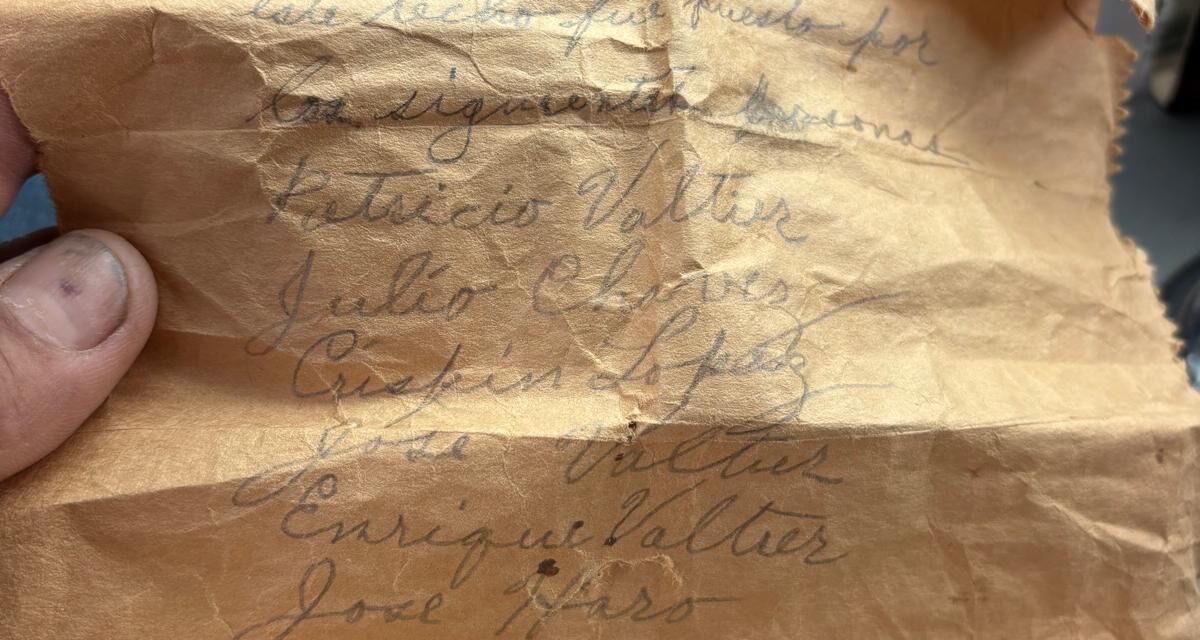 este techo fue puesto por
las siguientes personas
Patricio Valtier
Julio Chavez
Crispin Lopez
Jose Valtier
Enrique Valtier
Jose Haro